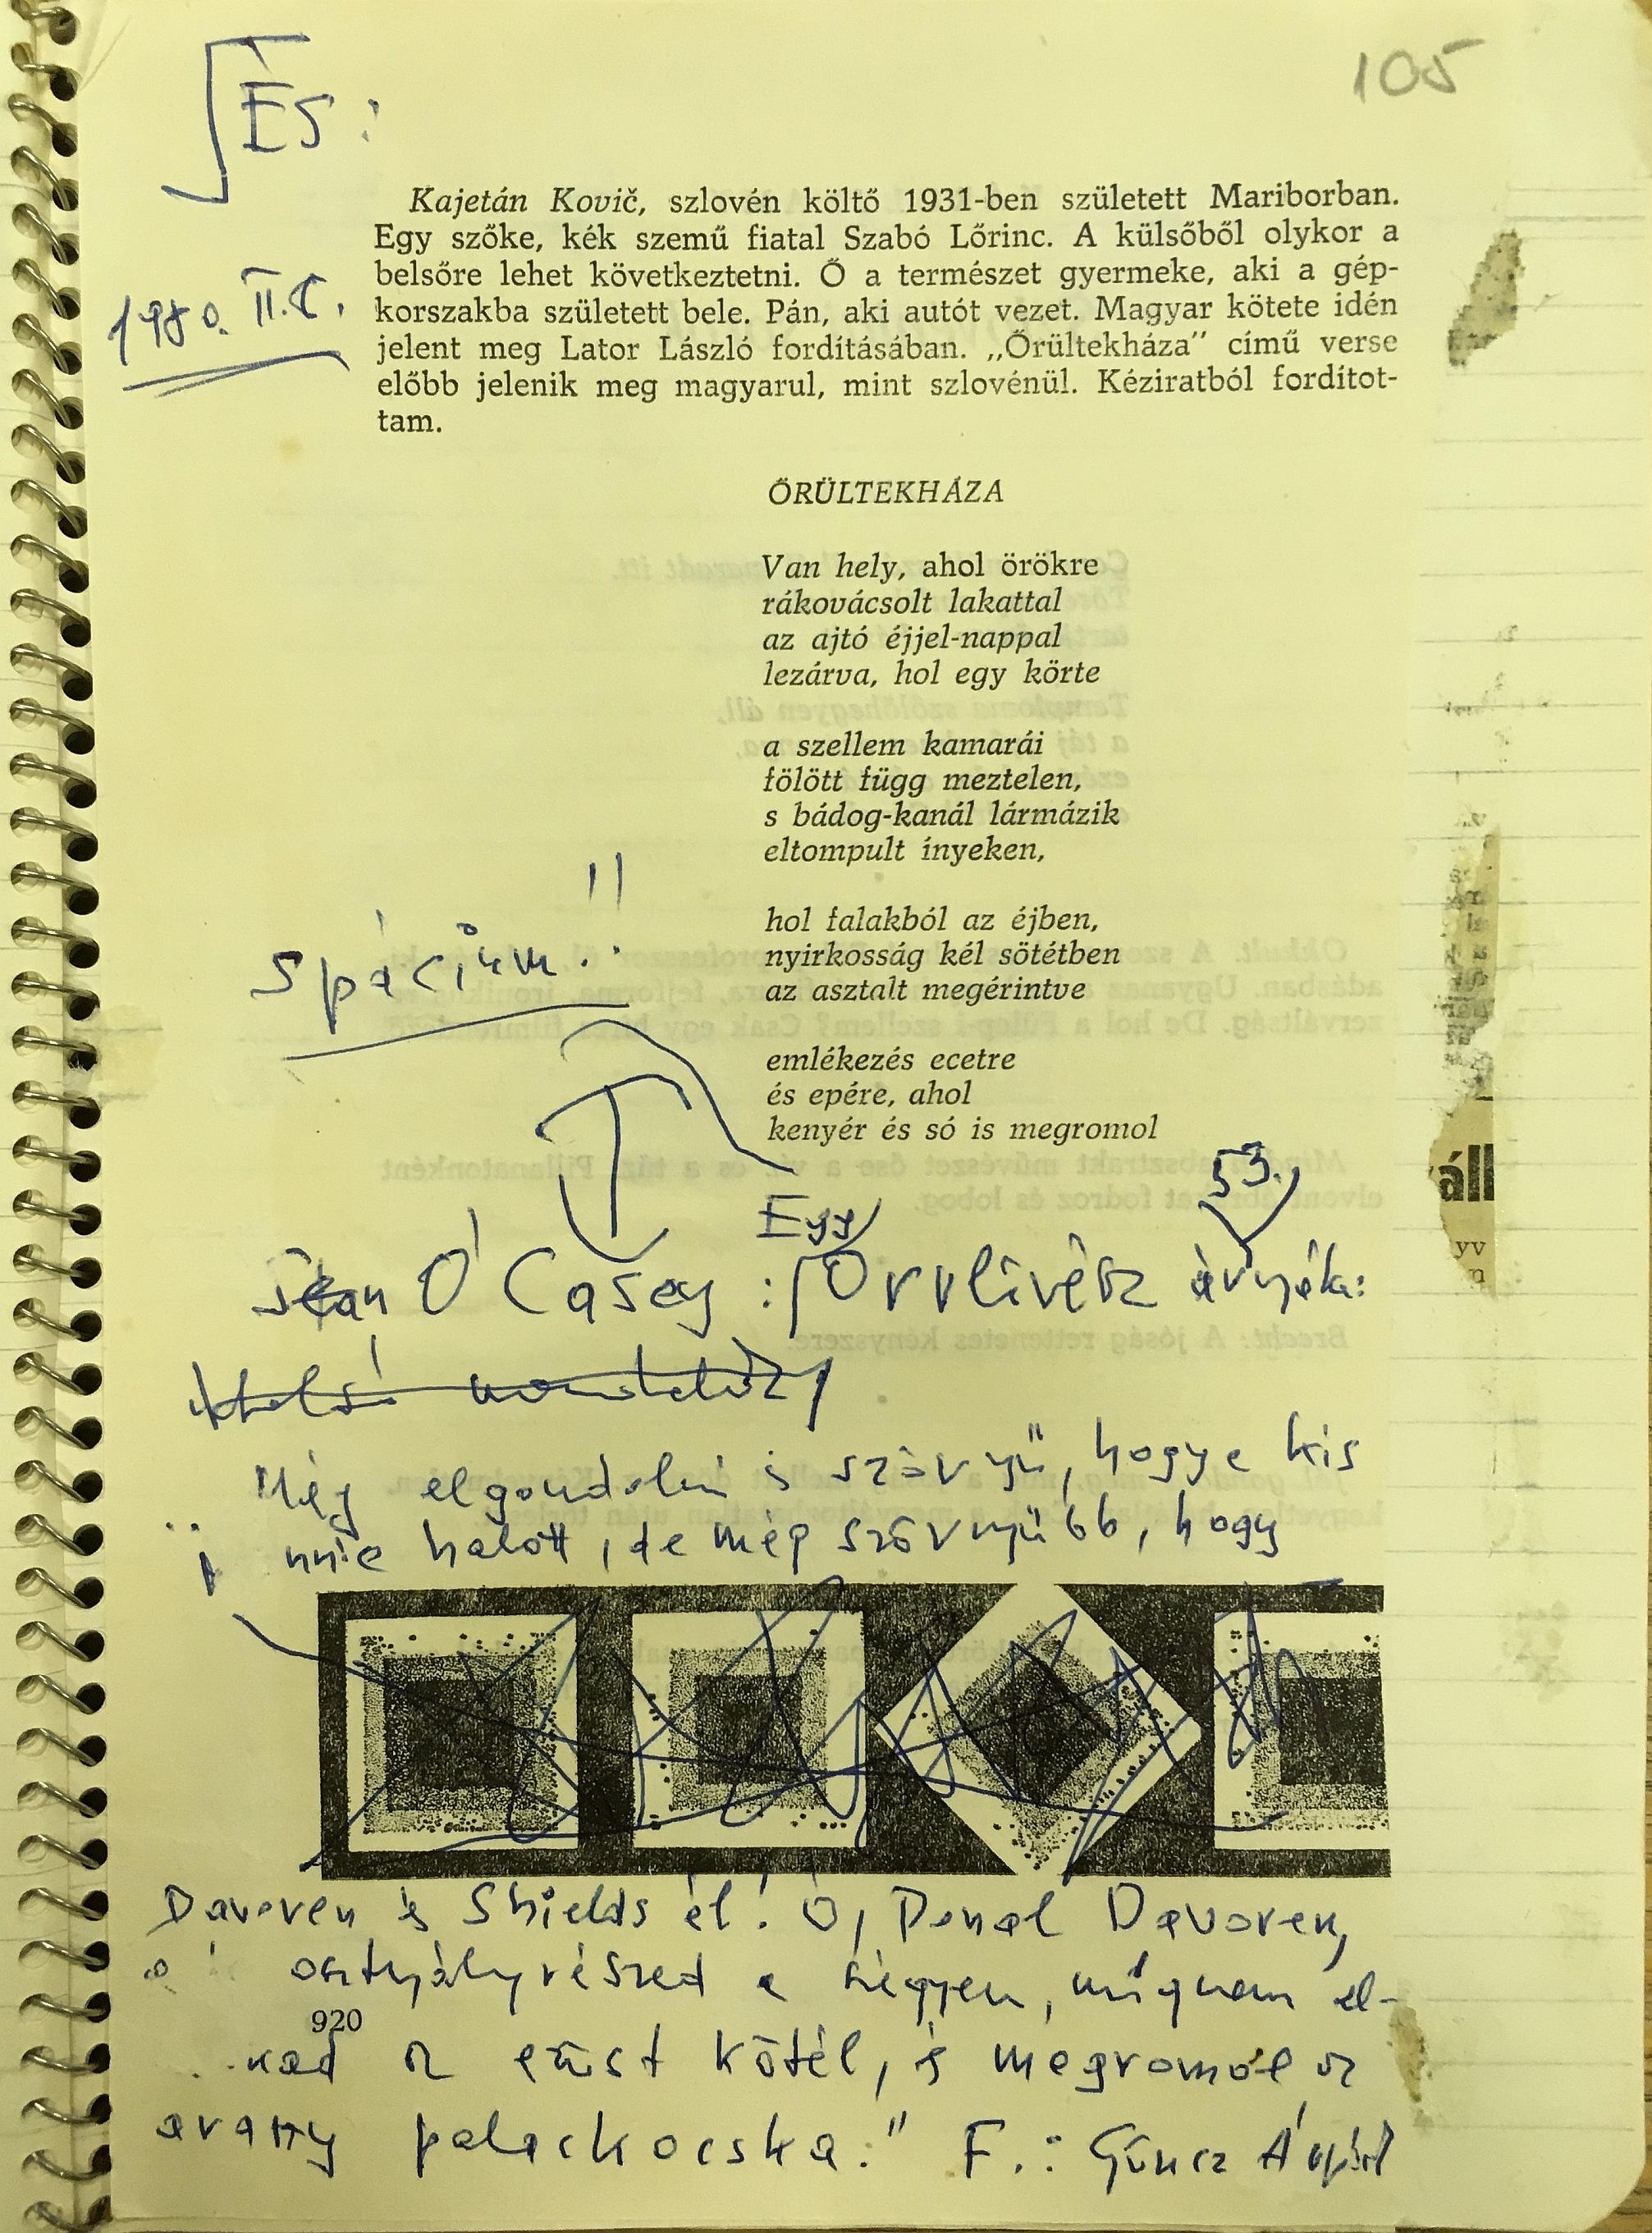 105
ÉS:
Kajetán Kovič, szlovén költő 1931-ben született Mariborban.
Egy szőke, kék szemű fiatal Szabó Lőrinc. A külsőből olykor a
belsőre lehet következtetni. Ő a természet gyermeke, aki a gép-
korszakba született bele. Pán, aki autót vezet. Magyar kötete idén
jelent meg Lator László fordításában. „Őrültekháza” című verse
előbb jelenik meg magyarul, mint szlovénül. Kéziratból fordítot-
tam.
1980. II.
ŐRÜLTEKHÁZA
Van hely, ahol örökre
rákovácsolt lakattal
az ajtó éjjel-nappal
lezárva, hol egy körte
a szellem kamarái
fölött függ meztelen,
s bádog-kanál lármázik
eltompult ínyeken,
hol falakból az éjben,
nyirkosság kél sötétben
az asztalt megérintve
emlékezés ecetre
és epére, ahol
kenyér és só is megromol
spácium!!
Egy 53.
Sean O'Casey: Orvlövész árnyéka:
Még elgondolni is szörnyű, hogy a kis
nnie halott, de még szörnyűbb, hogy
Davoren és Shields él! Ó, Donal Davoren,
osztályrészed a szégyen, mígnem el-
920
az ezüst kötél, és megromol az
arany palackocska." F.: Göncz Árpád
áll
yv